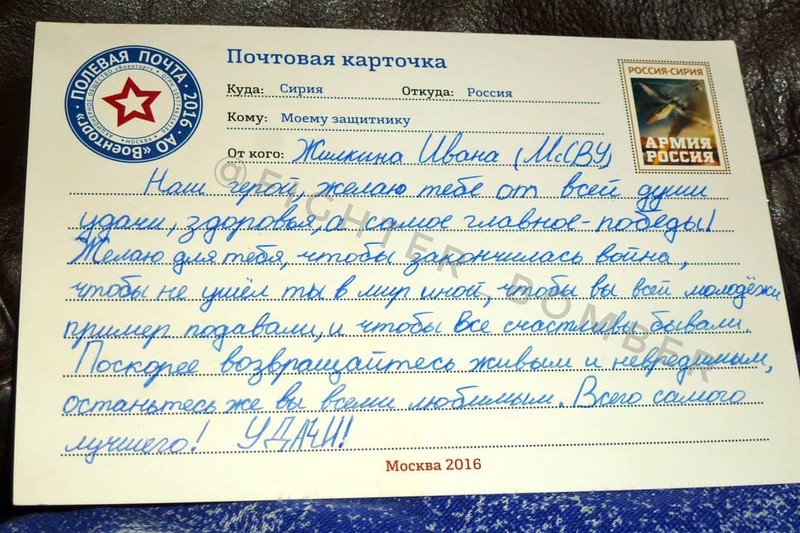 ПОЛЕВАЯ ПОЧТА · 2016 · АО "ВОЕНТОРГ" ·
Почтовая карточка
Куда: Сирия Откуда: Россия
Кому: Моему защитнику
От кого: Жилкина Ивана (МсСВУ)
РОССИЯ-СИРИЯ
АРМИЯ
РОССИЯ
Наш герой, желаю тебе от всей души
удачи, здоровья, а самое главное - победы!
Желаю для тебя, чтобы закончилась война,
чтобы не ушёл ты в мир иной, чтобы вы всей молодёжи
пример подавали, и чтобы все счастливы бывали.
Поскорее возвращайтесь живым и невредимым,
останьтесь же вы всеми любимым. Всего самого
лучшего! УДАЧИ!
Москва 2016
@FIGHTER_BOMBER